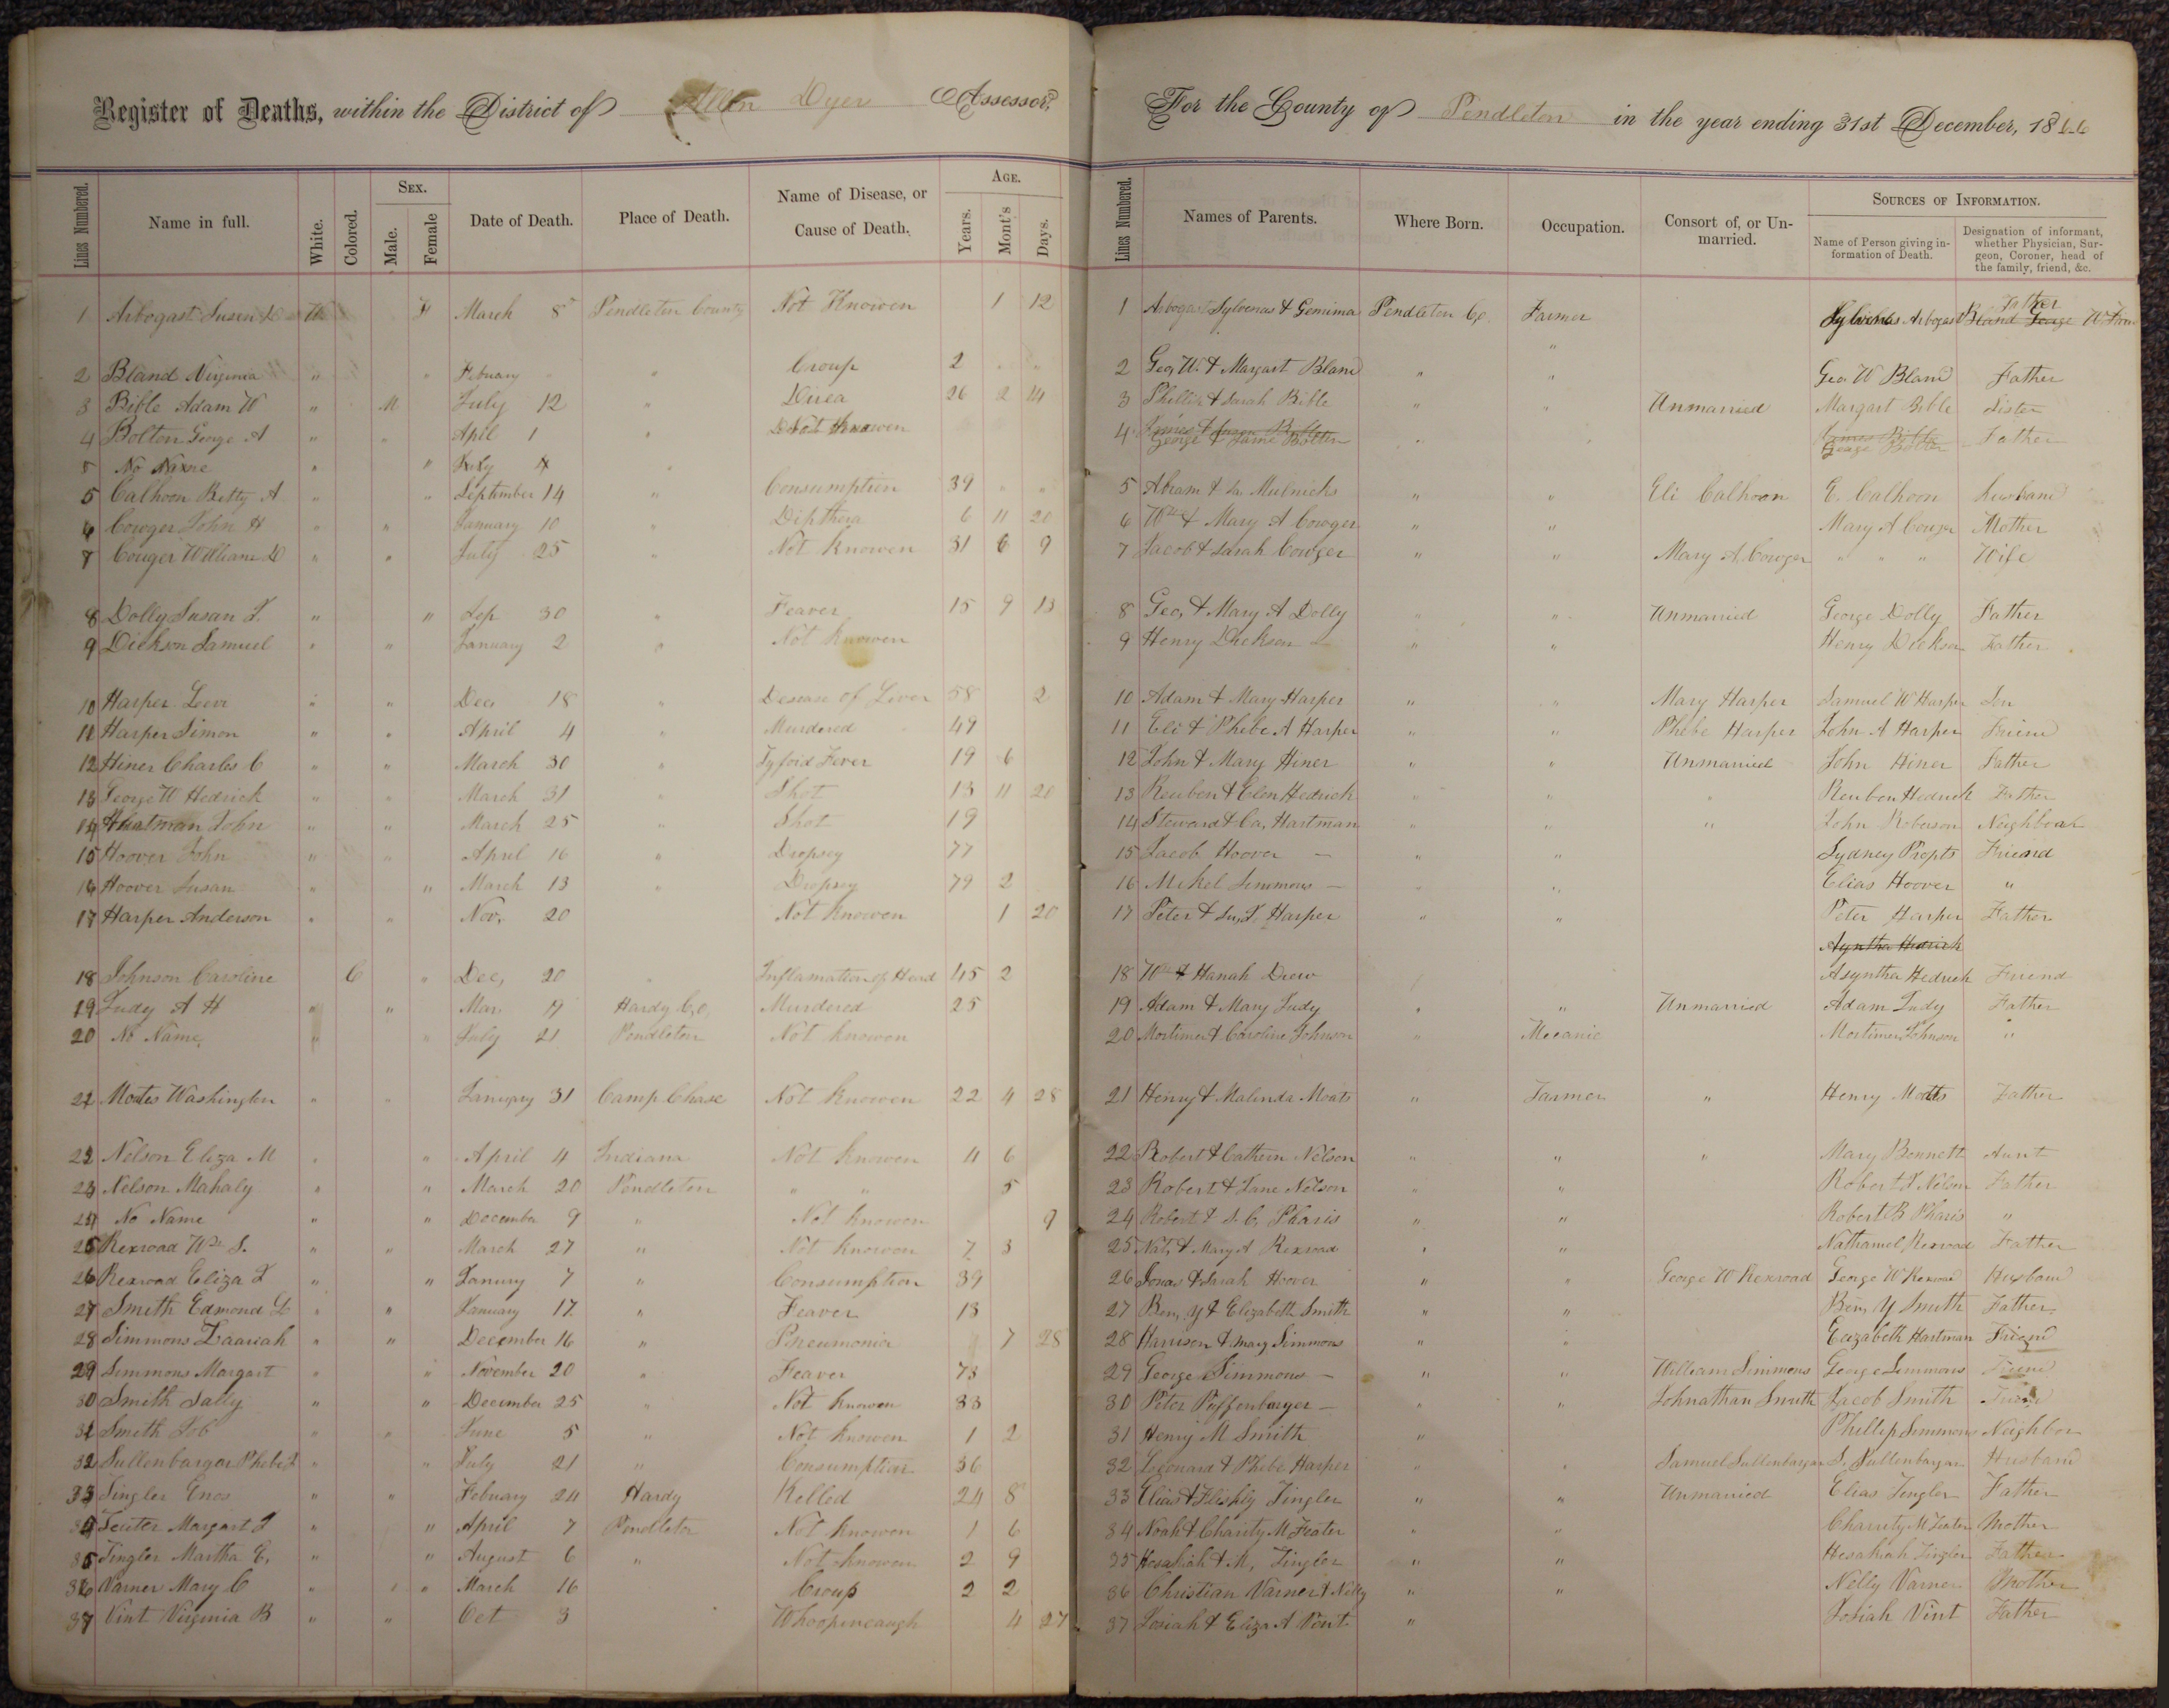 Register of Deaths, within the District of Allen Dyer Assessor,
Lines Numbered. Name in full. White. Colored. Sex. Male. Female Date of Death. Place of Death. Name of Disease, or Cause of Death. Age. Years. Mont's Days.
1 Arbogast Susan W F March 8 Pendleton County Not Knowen 1 12
2 Bland Virginia " " Febuary " Croup 2 " "
3 Bible Adam W " M July 12 " 26 2 14
4 Bolton George A " " April 1 " Not Knowen
5 No Name " " July 4 "
5 Calhoon Betty A " " September 14 " Consumption 39 " "
6 Cowger John H " " January 10 " Dipthera 6 11 20
7 Couger William D " " July 25 " Not Knowen 31 6 9
8 Dolly Susan " " Sep 30 " Feaver 15 9 13
9 Dickson Samuel " " January 2 " Not Knowen
10 Harper Levi " " Dec 18 " Desease of Liver 58 2
11 Harper Simon " " April 4 " Murdered 49
12 Hiner Charles C " " March 30 " Tyfoid Fever 19 6
13 George W Hedrick " " March 31 " Shot 13 11 20
14 Hartman John " " March 25 " Shot 19
15 Hoover John " " April 16 " Dropsey 77
16 Hoover Susan " " March 13 " Dropsey 79 2
17 Harper Anderson " " Nov. 20 Not Knowen 1 20
18 Johnson Caroline C " Dec, 20 " Inflamation of Head 45 2
19 Judy A H " " Mar 19 Hardy Co, Murdered 25
20 No Name " " July 21 Pendleton Not Knowen
21 Moates Washington " " January 31 Camp Chase Not Knowen 22 4 28
22 Nelson Eliza M " " April 4 Indiana Not Knowen 4 6
23 Nelson Mahaly " " March 20 Pendleton " " 5
24 No Name " " December 9 " Not Knowen 9
25 Rexroad Wm S. " " March 27 " Not Knowen 7 3
26 Rexroad Eliza J " " Janury 7 " Consumption 39
27 Smith Edmond " " January 17 " Feaver 13
28 Simmons Zaariah " " December 16 " Pneumonia 7 28
29 Simmons Margart " " November 20 " Feaver 73
30 Smith Sally " " December 25 " Not Knowen 33
31 Smith Job " " June 5 " Not Knowen 1 2
32 Sullenbargar Phebe J " " July 21 " Consumption 36
33 Tingler Enos " " Febuary 24 Hardy Killed 24 8
34 Teater Margart J " " April 7 Pendleton Not Knowen 1 6
35 Tingler Martha E, " " August 6 " Not Knowen 2 9
36 Varner Mary C " " March 16 Croup 2 2
37 Vint Virginia B " " Oct 3 Whoopincaugh 4 27
For the County of Pendleton in the year ending 31st December, 1866
Lines Numbered. Names of Parents. Where Born. Occupation. Consort of, or Unmarried. Sources of Information. Name of Person giving information of Death. Designation of informant, whether Physician, Surgeon, Coroner, head of the family, friend, &c.
1 Arbogast Sylvenas & Gemima Pendleton Co. Farmer Sylvenas Arbogast Bland George W Father
2 Geo, W. & Margart Bland " " Geo W Bland Father
3 Phillip & Sarah Bible " " Unmarried Margart Bible Sister
4 George & Jane Bolton " " George Bolton Father
5 Abram & Sa. Mulnicks " " Eli Calhoon E. Calhoon Husband
6 Wm & Mary A Cowger " " Mary A Couger Mother
7 Jacob & Sarah Cowger " " Mary A. Cowger " " " Wife
8 Geo, & Mary A Dolly " " Unmarried George Dolly Father
9 Henry Dickson " " Henry Dickson Father
10 Adam & Mary Harper " " Mary Harper Samuel W Harper Son
11 Eli & Phebe A Harper " " Phebe Harper John A Harper Friend
12 John & Mary Hiner " " Unmarried John Hiner Father
13 Reuben & Elen Hedrick " " " Reuben Hedrick Father
14 Steward & Ca, Hartman " " " John Roberson Neighboar
15 Jacob Hoover — " " Sydney Propts Friend
16 Mikel Simmons — " " Elias Hoover "
17 Peter & Su, Harper " " Peter Harper Father
Asyntha Hedrick
18 Wm & Hanah Drew Asyntha Hedrick Friend
19 Adam & Mary Judy " " Unmarried Adam Judy Father
20 Mortimer & Caroline Johnson " Mecanic Mortimer Johnson "
21 Henry & Malinda Moats " Farmer " Henry Moats Father
22 Robert & Cathern Nelson " " " Mary Bennett Aunt
23 Robert & Jane Nelson " " Robert J Nelson Father
24 Robert & S. C. Pharis " " Robert B Pharis "
25 Nat, & Mary A Rexroad " " Nathaniel Rexroad Father
26 Jonas & Sarah Hoover " " George W Rexroad George W Rexroad Husband
27 Ben, Y & Elizabeth Smith " " Ben, Y Smith Father
28 Harrison & Mary Simmons " " Elizabeth Hartman Friend
29 George Simmons — " " William Simmons George Simmons Friend
30 Peter Puffenbarger — " " Johnathan Smith Jacob Smith Friend
31 Henry M Smith " Phillip Simmons Neighbor
32 Leonard & Phebe Harper " " Samuel Sullenbargar S. Sullenbargar Husband
33 Elias & Tingler " " Unmarried Elias Tingler Father
34 Noah & Charity M Teater " " Charrity M Teater Mother
35 Hesakiah & M, Tingler " " Hesakiah Tingler Father
36 Christian Varner & Nelly " " Nelly Varner Mother
37 Josiah & Eliza A Vint " Josiah Vint Father